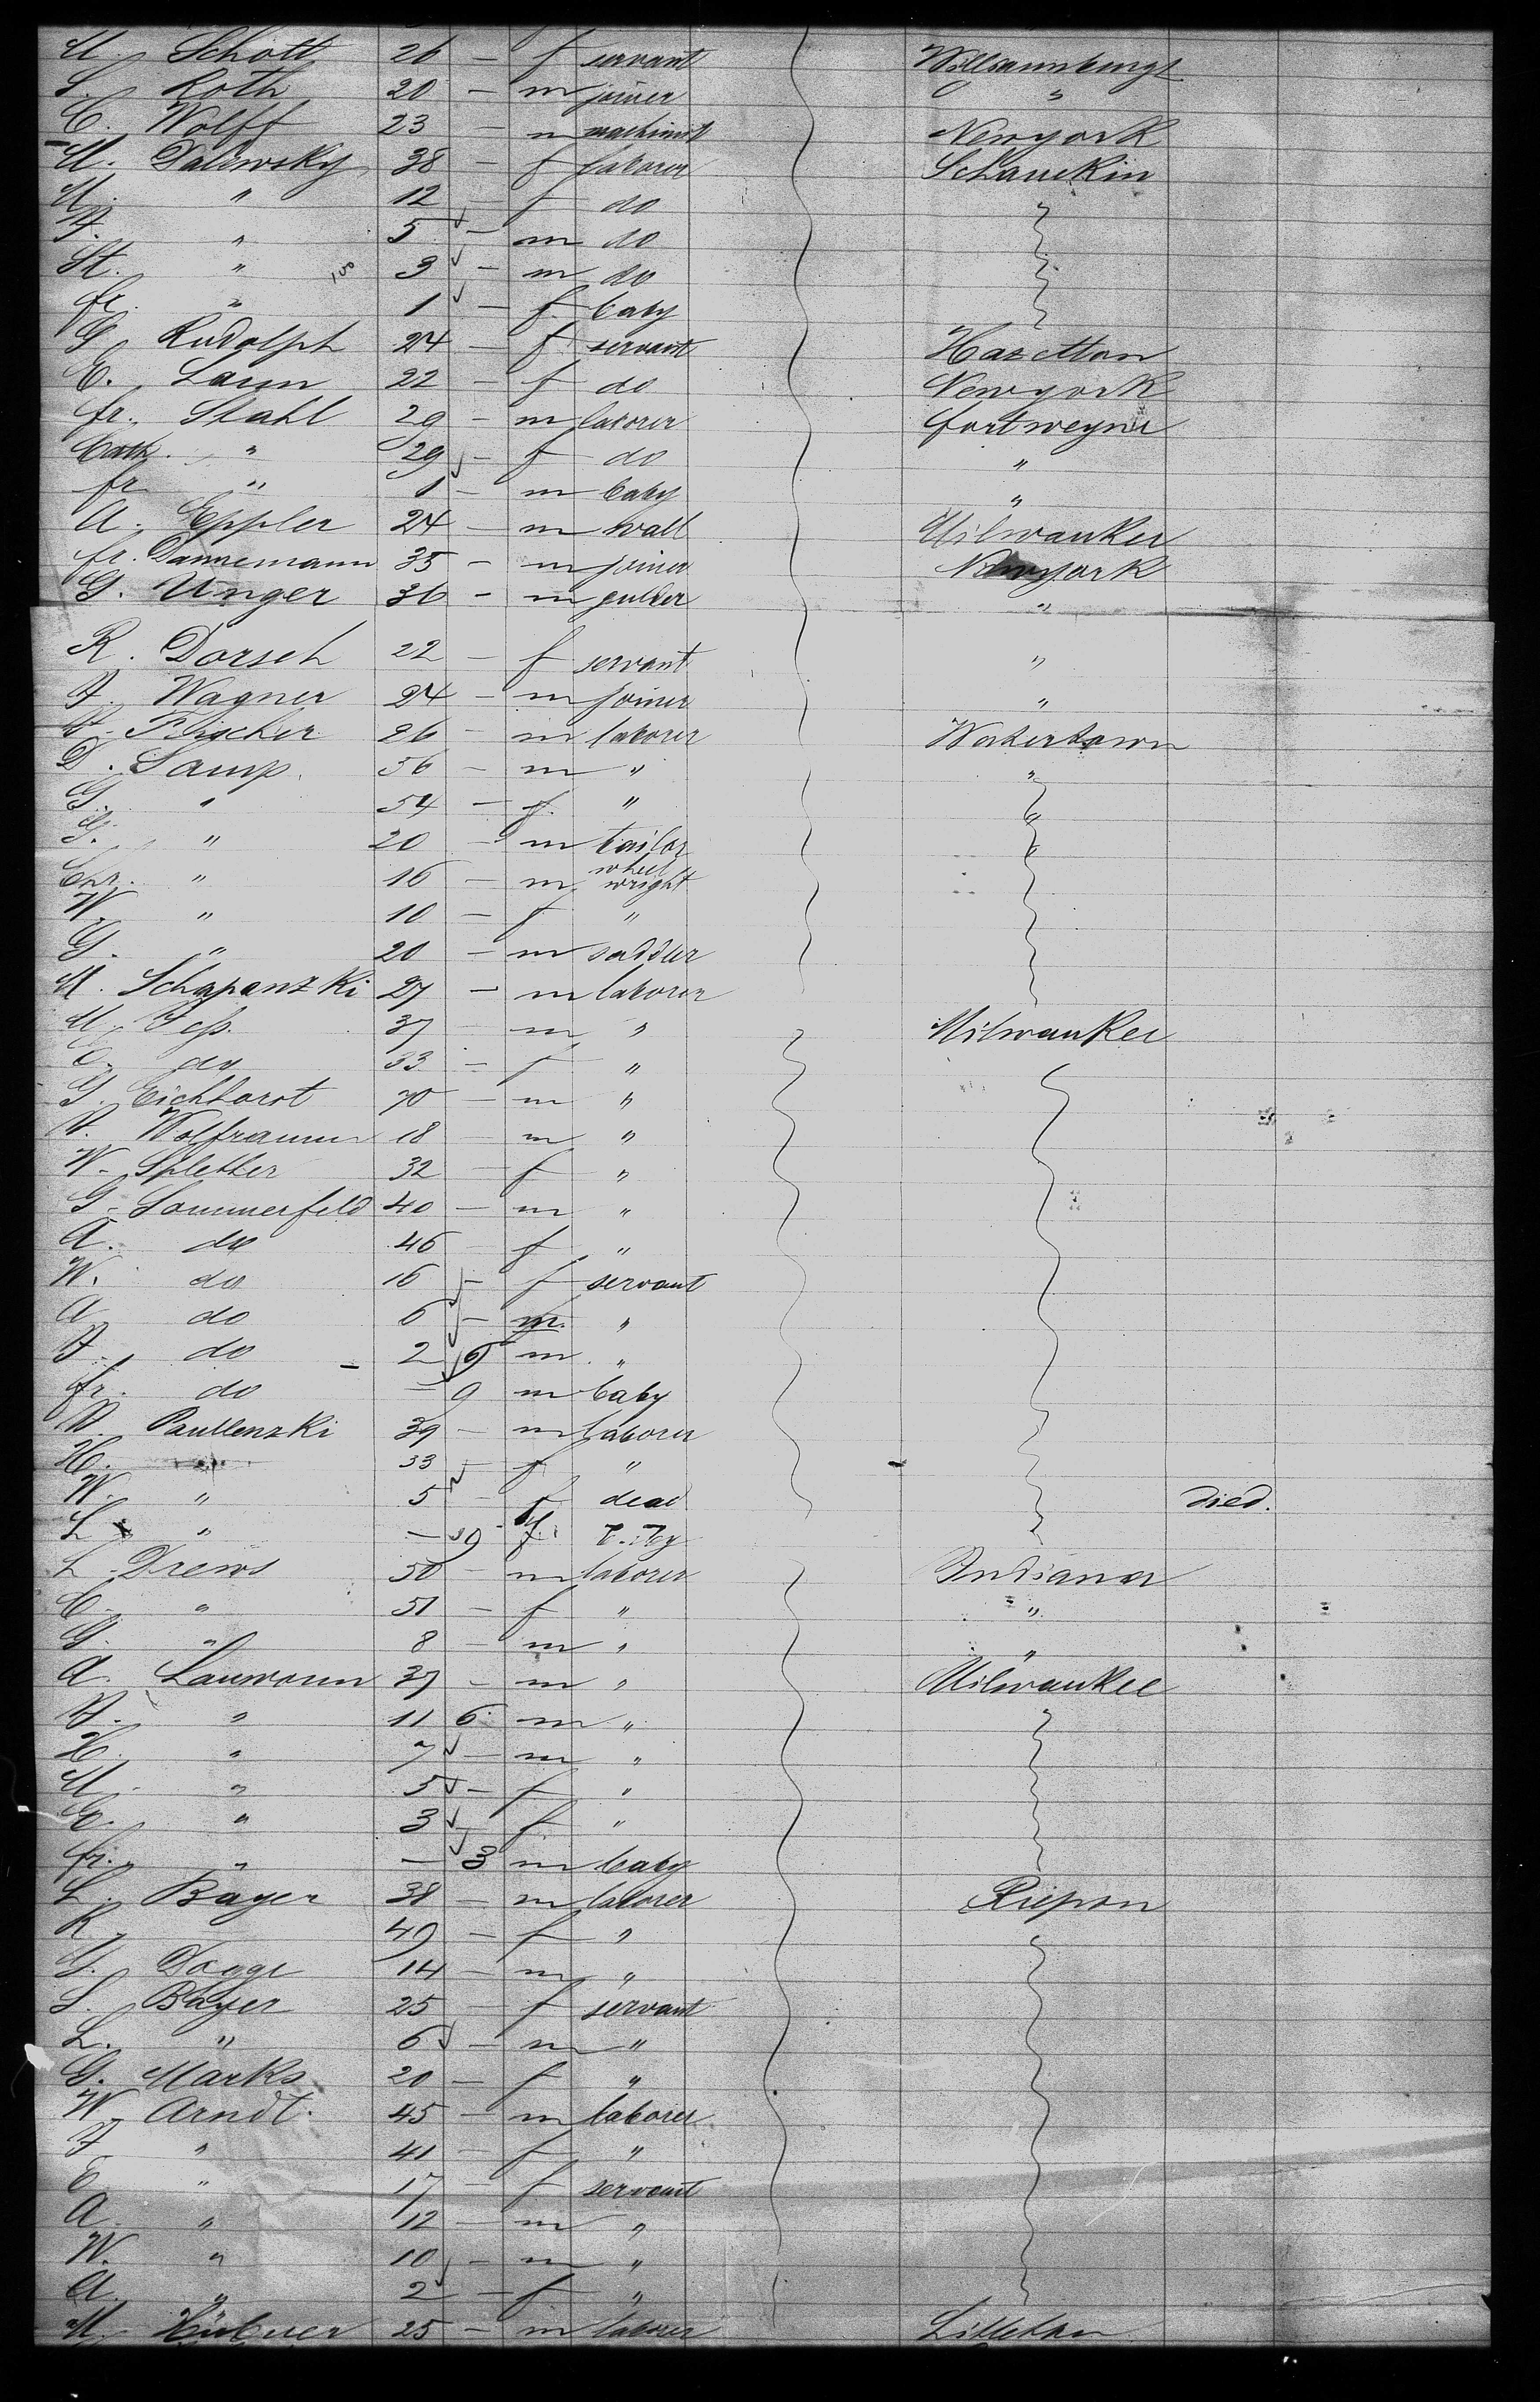 M. Schott 26 — f servant Williamsburgh
S. Roth 20 — m joiner "
C. Wolff 23 — m machinist Newyork
M. Dalewsky 38 — f laborer Schamekin
M. " 12 — f do
F. " 5 — m do
St. " 3 — m do
fr. " 1 — f baby
G. Rudolph 24 — f servant Hazelton
E. Laun 22 — f do Newyork
fr. Stahl 29 — m laborer fortweyne
Cath. " 29 — f do "
fr. " 1 — m baby "
A. Eppler 24 — m wall Milwaukee
fr. Dannemann 35 — m joiner Newyork
G. Unger 36 — m "
R. Dorsch 22 — f servant "
F. Wagner 24 — m joiner "
Fischer 26 — m laborer Watertown
D. Samp. 56 — m " "
G. " 54 — f "
G. " 20 — m tailor
Chr. " 16 — m wheel wright
W. " 10 — f "
G. " 20 — m saddler
M. Schapanzki 27 — m laborer
M. Jess. 37 — m " Milwaukee
C. do 33 — f "
G. Eichhorst 70 — m "
A. Wolframm 18 — m "
W. Spletter 32 — f "
G. Sommerfeld 40 — m "
A. do 46 — f "
W. do 16 — f servant
A. do 6 — m "
F. do 2 6 m "
fr. do — 9 m baby
A. Paullenzki 39 — m laborer
H. " 33 — f "
W. " 5 — f dead died.
L. " — 9 f baby
L. Drews 50 — m laborer Indiana
C. " 51 — f " "
G. " 8 — m " "
A. Laumann 37 — m " Milwaukee
F. " 11 6 m "
H. " 7 — m "
M. " 5 — f "
E. " 3 — f "
fr. " — 3 m baby
L. Bayer 38 — m laborer Riepon
R. 49 — f "
G. Dogge 14 — m "
S. Bayer 25 — f servant
L. " 6 — m "
G. Marks 20 — f "
W. Arndt. 45 — m laborer
F. " 41 — f "
E. " 17 — f servant
A. " 12 — m "
W. " 10 — m "
A. " 2 — f "
M. Hübner 25 — m laborer Littletan